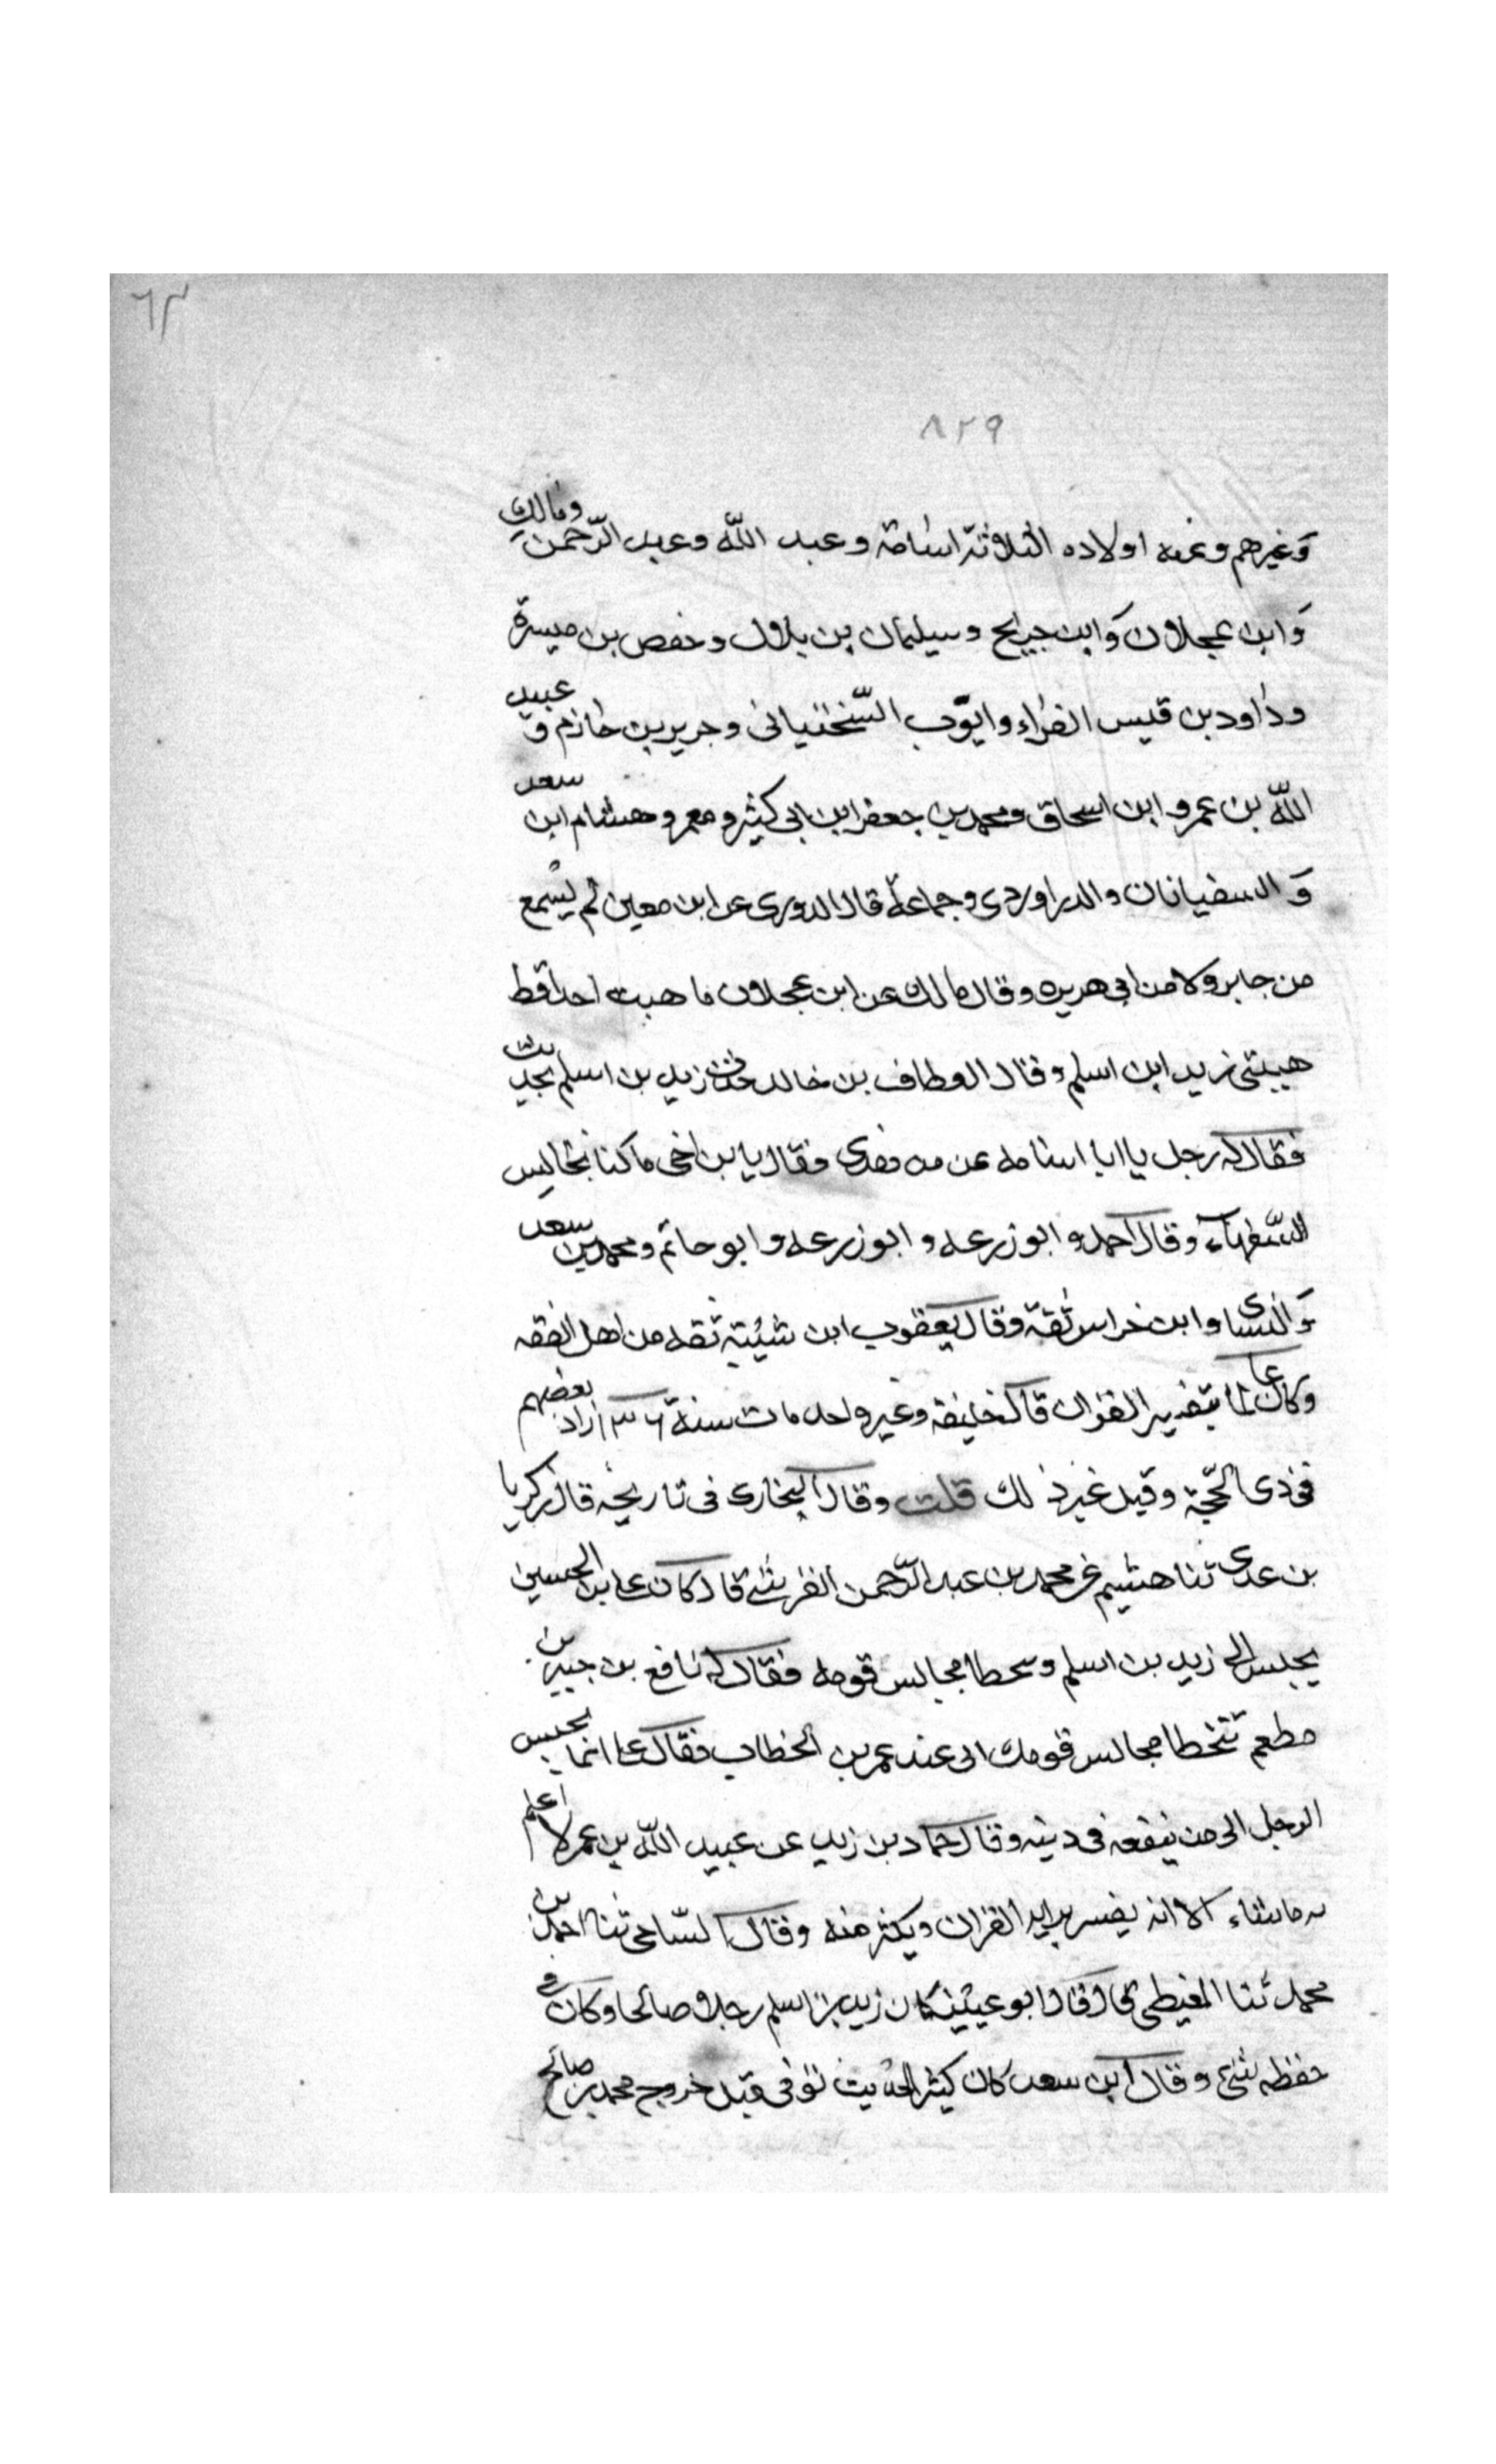 ٦٣
٨٢٩
وغيرهم وعنه اولاده الثلاثة اسامة وعبد الله وعبد الرحمن ومالك
وابن عجلان وابن جريج وسليمان بن بلال وحفص بن ميسرة
وداود بن قيس الفراء وايوب السختياني وجرير بن حازم وعبيد
الله بن عمر وابن اسحاق ومحمد بن جعفر ابن ابي كثير ومعمر وهشام ابن سعد
والسفيانان والدراوردي وجماعة قال الدوري عن ابن معين لم يسمع
من جابر ولا من ابي هريره وقال مالك عن ابن عجلان ما هبت احدا قط
هيبتي زيد ابن اسلم وقال العطاف بن خالد حدث زيد بن اسلم بحديث
فقال له رجل يا ابا اسامه عن من هذا فقال يا بن اخي ما كنا نجالس
السفهاء وقال احمد وابو زرعه وابو زرعه وابو حاتم ومحمد بن سعد
والنساى وابن خراش ثقة وقال يعقوب ابن شيبة ثقه من اهل الفقه
وكان عالما بتفسير القران قال خليفه وغير واحد مات سنة ١٣٦ زاد بعضهم
في ذي الحجة وقيل غير ذلك قلت وقال البخاري في تاريخه قال زكريا
بن عدى ثنا هشيم عن محمد بن عبد الرحمن القرشي قال كان علي بن الحسين
يجلس الى زيد بن اسلم وسحطا مجالس قومه فقال له نافع بن جبير بن
مطعم تتخطا مجالس قومك الى عند عمر بن الخطاب فقال علي انما يجلس
الرجل الى من ينفعه في دينه وقال حماد بن زيد عن عبيد الله بن عمر لا اعلم
به ماساء الا انه يفسر برايه القران ويكثر منه وقال الساجي ثنا احمد بن
محمد ثنا المعيطي قال قال ابو عيينه كان زيد بن اسلم رجلا صالحا وكان في
حفظه شئ وقال ابن سعد كان كثير الحديث توفي قبل خروج محمد بن صالح